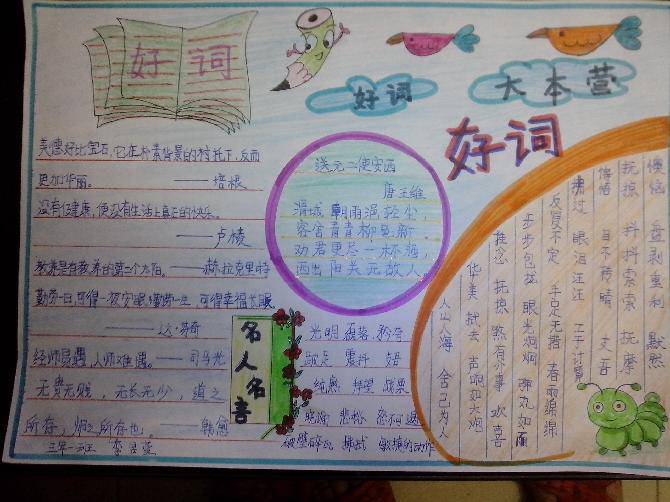 好词
好词
大本营
好词
美德好比宝石,它在朴素背景的衬托下,反而
更加华丽。——培根
没有健康,便没有生活上真正的快乐。
——卢梭
教养是有教养的第二个太阳。——赫拉克里特
勤劳一日,可得一夜安眠;勤劳一生,可得幸福长眠
——达·芬奇
经师易遇,人师难遇。——司马光
无贵无贱,无长无少,道之
所存,师之所存也。——韩愈
三年一班
名人名言
送元二使安西
唐王维
渭城朝雨浥轻尘,
客舍青青柳色新
劝君更尽一杯酒,
西出阳关无故人。
光明 矜夸
震抖
纯熟 拜望 战栗
悲惨
敏捷的动作
懊恼 盘剥重利 默然
抚掠 抖抖索索 抚摩
悔悟 目不转睛 丈吾
拂过 眼泪汪汪 工于计算
反复不定 手足无措 春雨绵绵
步步包花 眼光炯炯 弹丸如雨
推念 抚掠 煞有介事 欢喜
华美 拭去 声响如大炮
人山人海 舍己为人